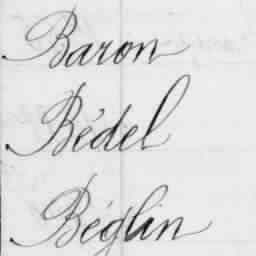 Baron
Bédel
Béglin